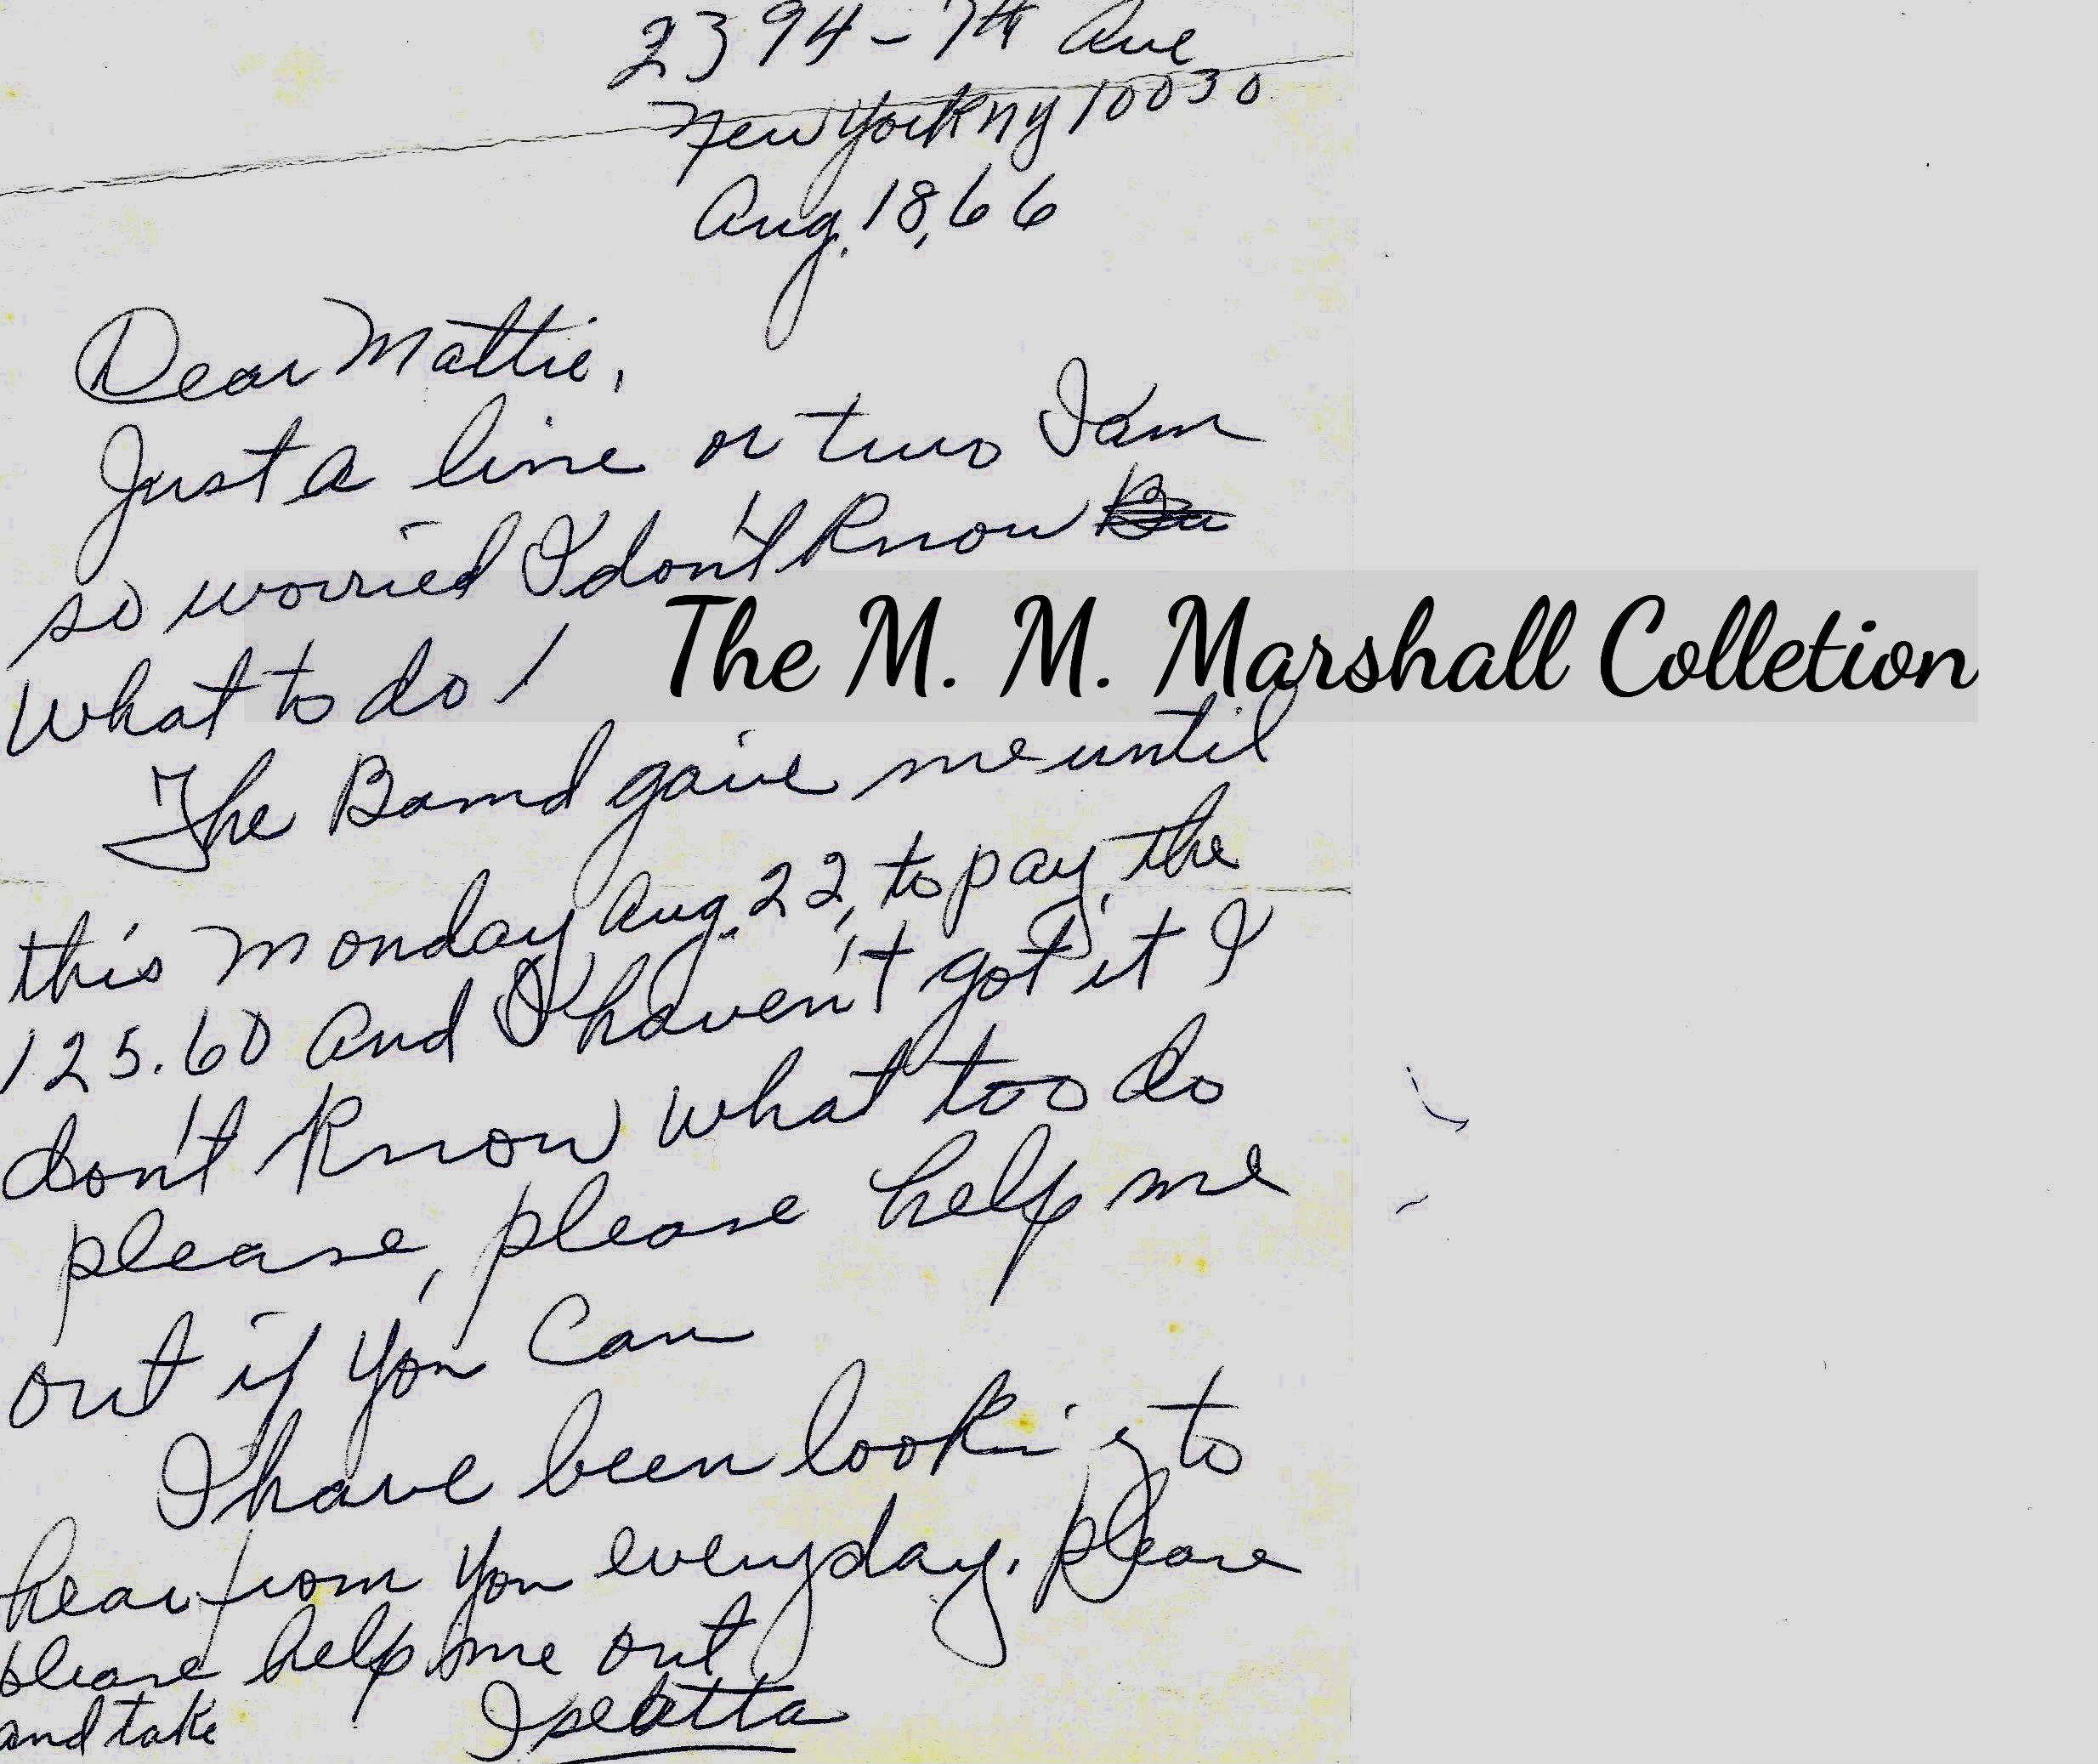 2394 - 7th Ave
New York ny 10030
Aug. 18, 66
Dear Mattie,
Just a line or two I am
so worried I don't know Bu
what to do!
The M. M. Marshall Colletion
The Band gave me until
this monday Aug. 22, to pay the
125.60 and I haven't got it I
don't know what too do
please, please help me
out if you can
I have been looking to
hear from you everyday. please
please help me out
and take